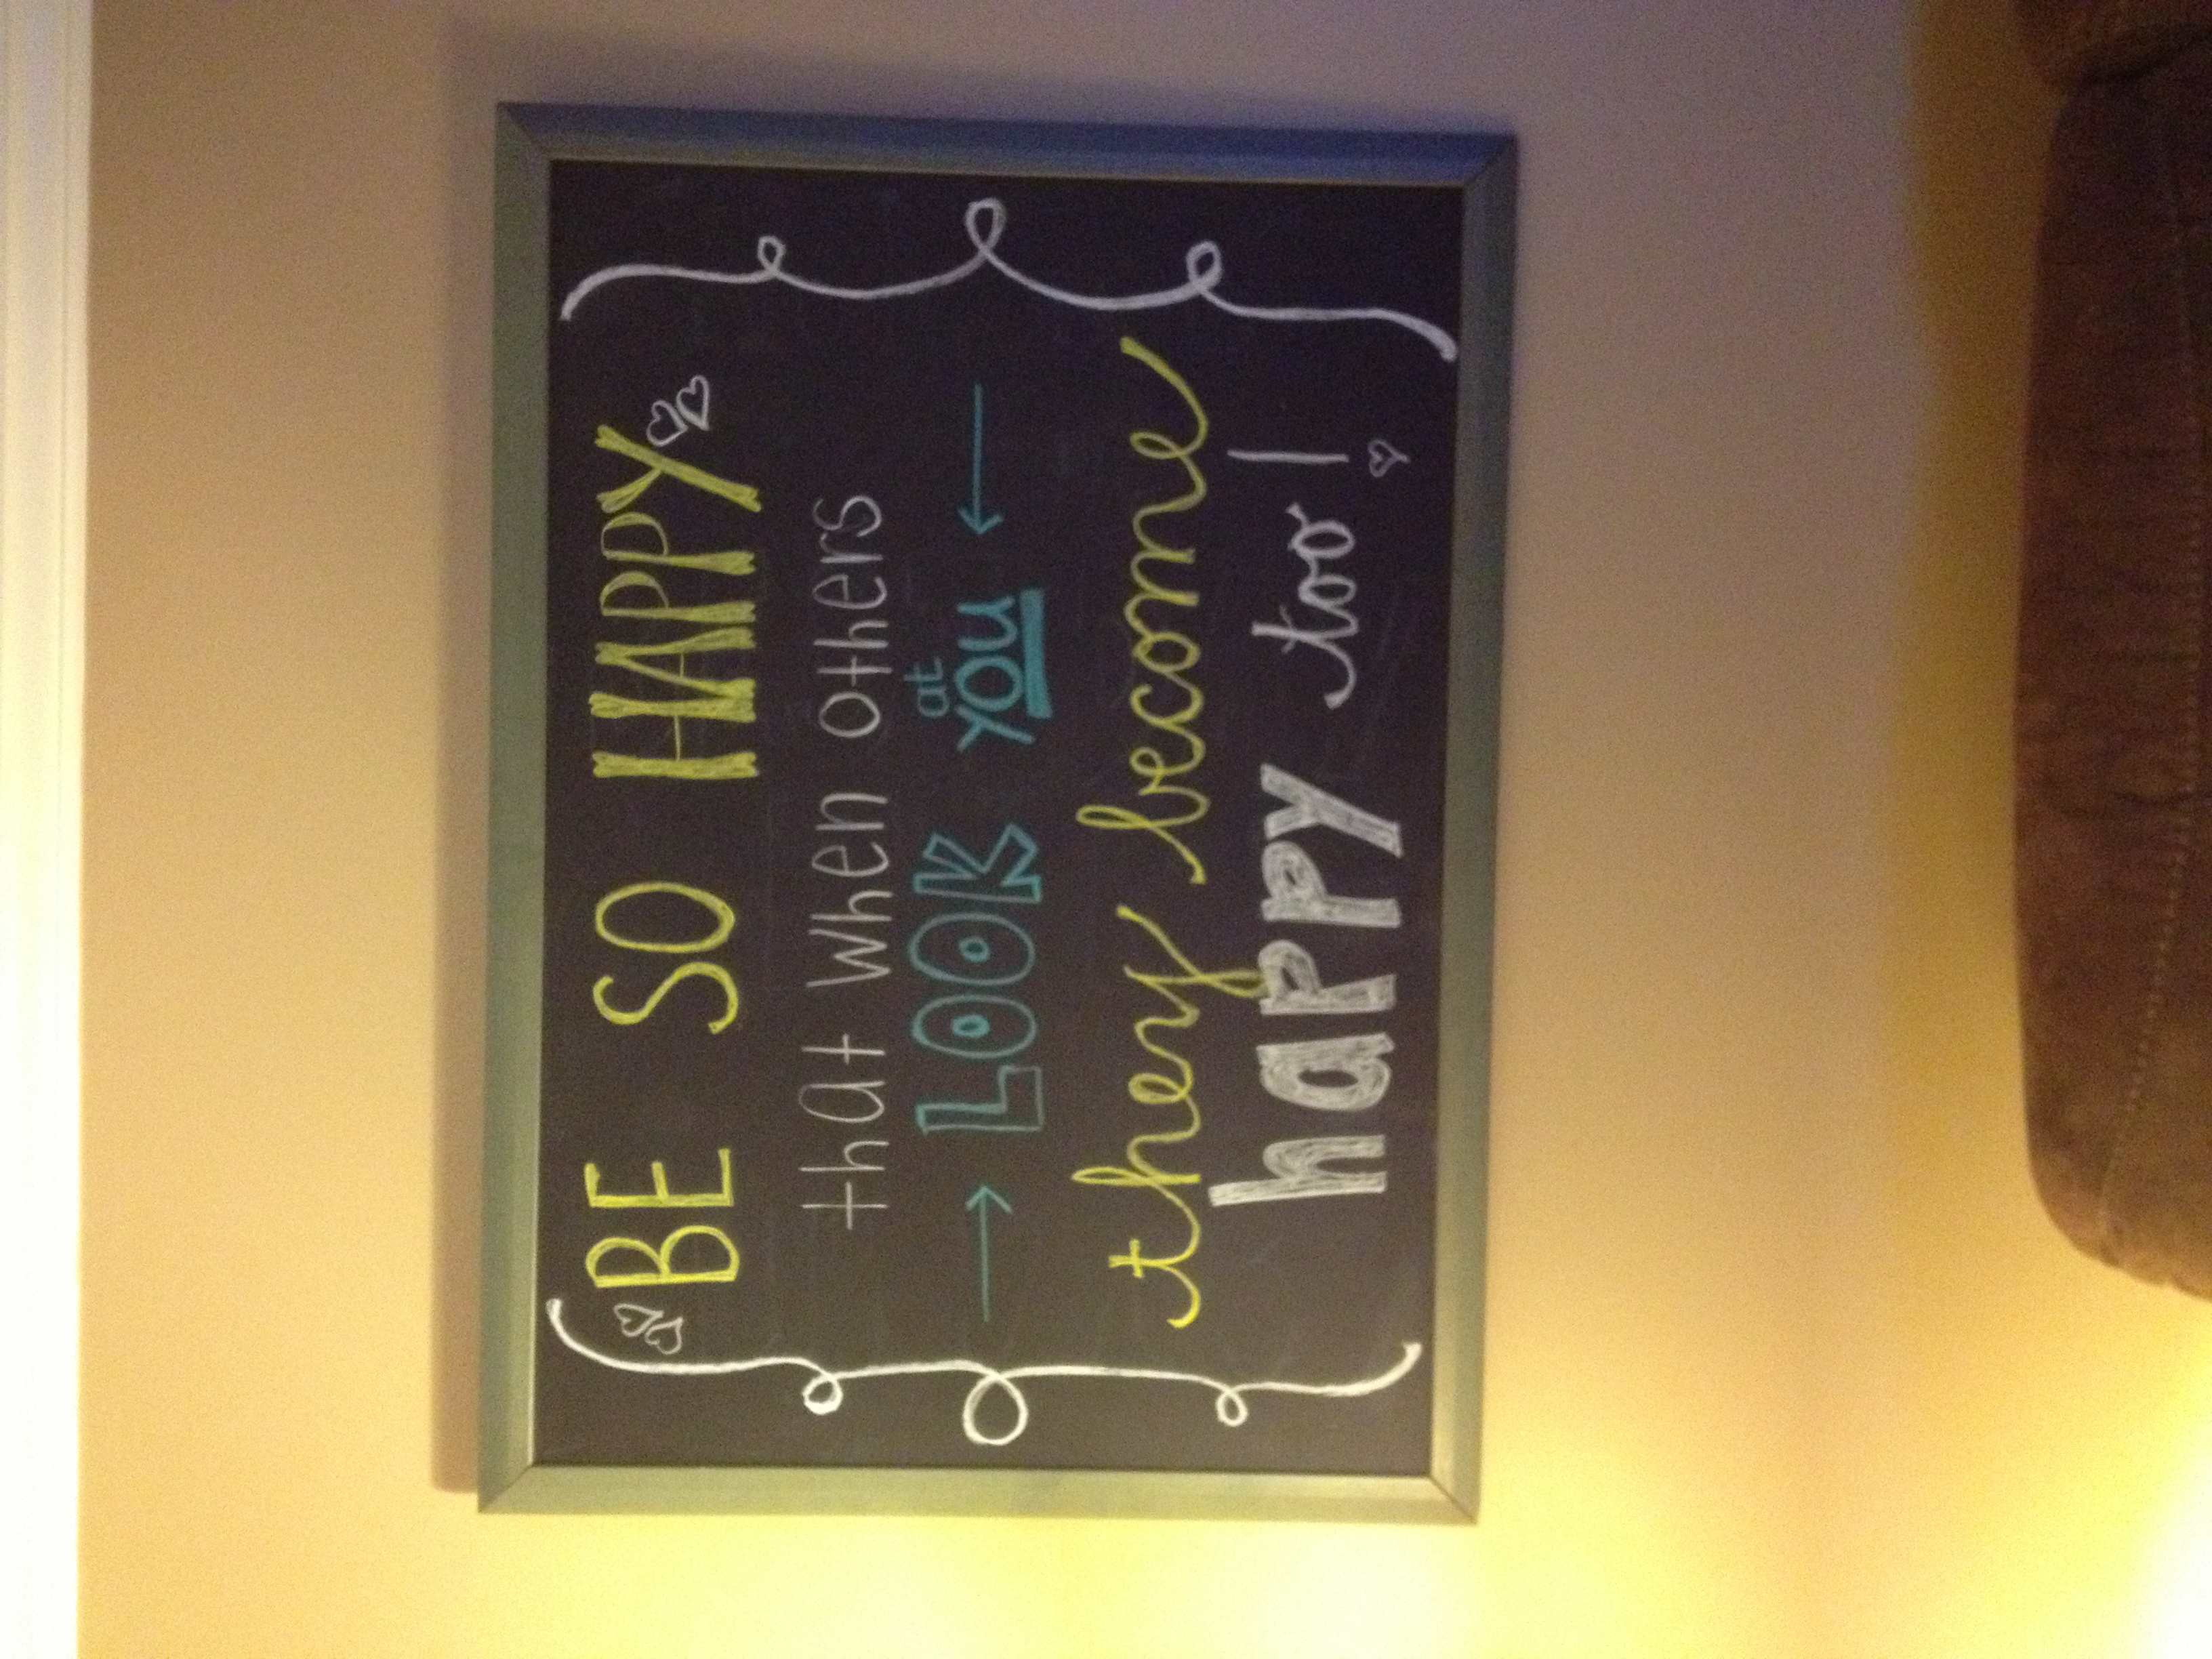 BE SO HAPPY
that when others
LOOK at YOU
they become
happy too!